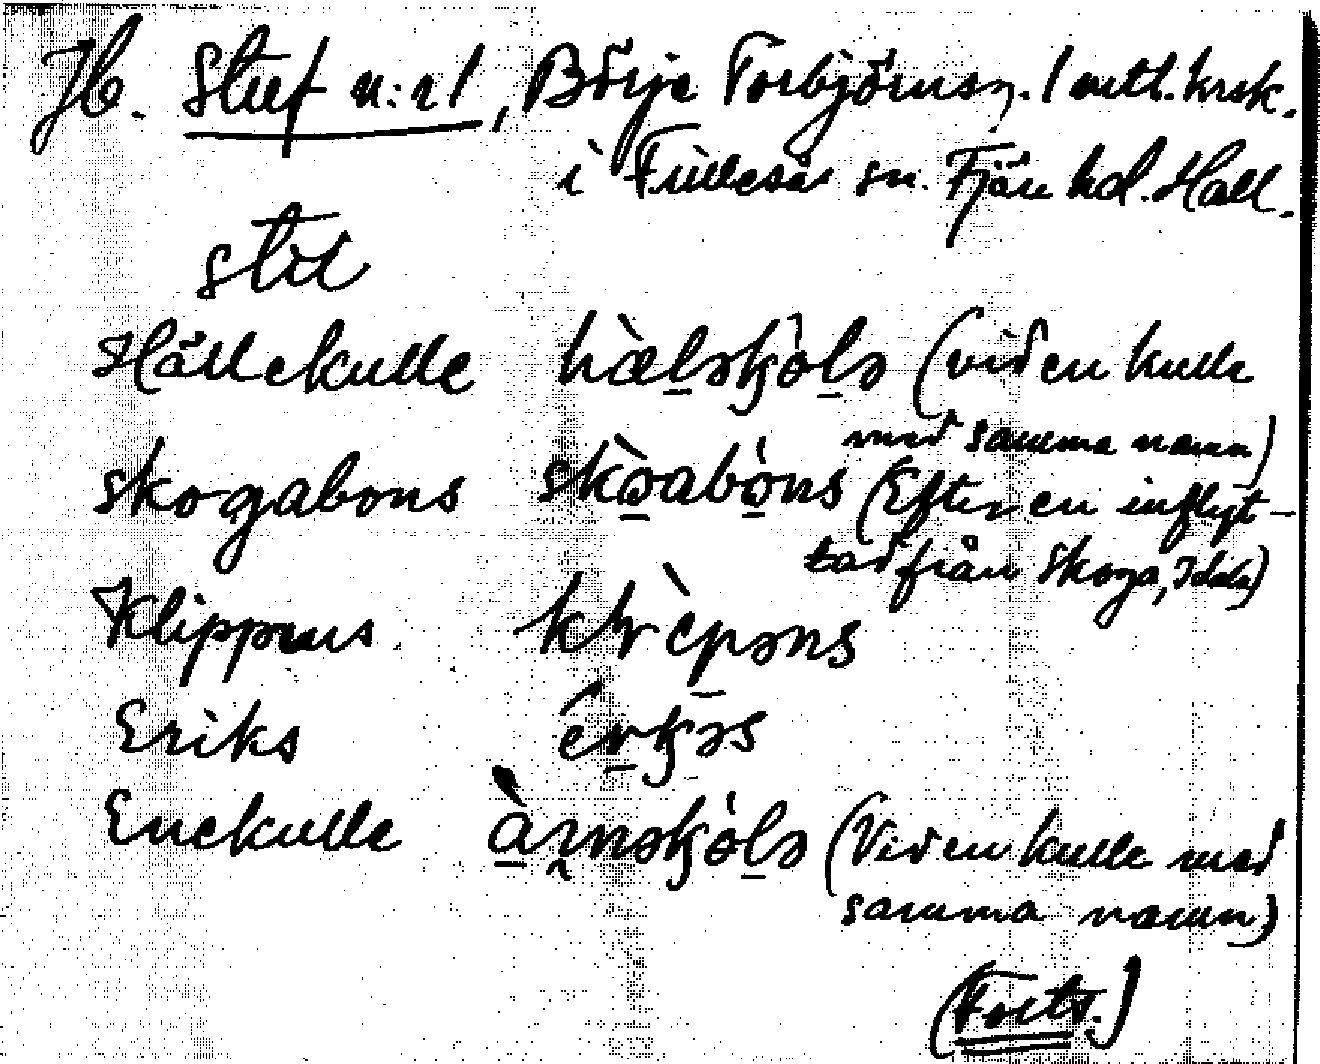 Jb. Stuf n:r 1, Börje Torbjörnsn. 1 mtl. krsk.
i Fulleså sn. Fjäre hd. Hall.
stil
Hällekulle hæ̀ləkòlə (vid en kulle
med samma namn)
skogabons skòabóns (Efter en inflyt-
tad från Skoga, Idala)
Klippens klèpəns
Eriks érkəs
Enekulle ànəkòlə (Vid en kulle med
samma namn)
(Forts.)